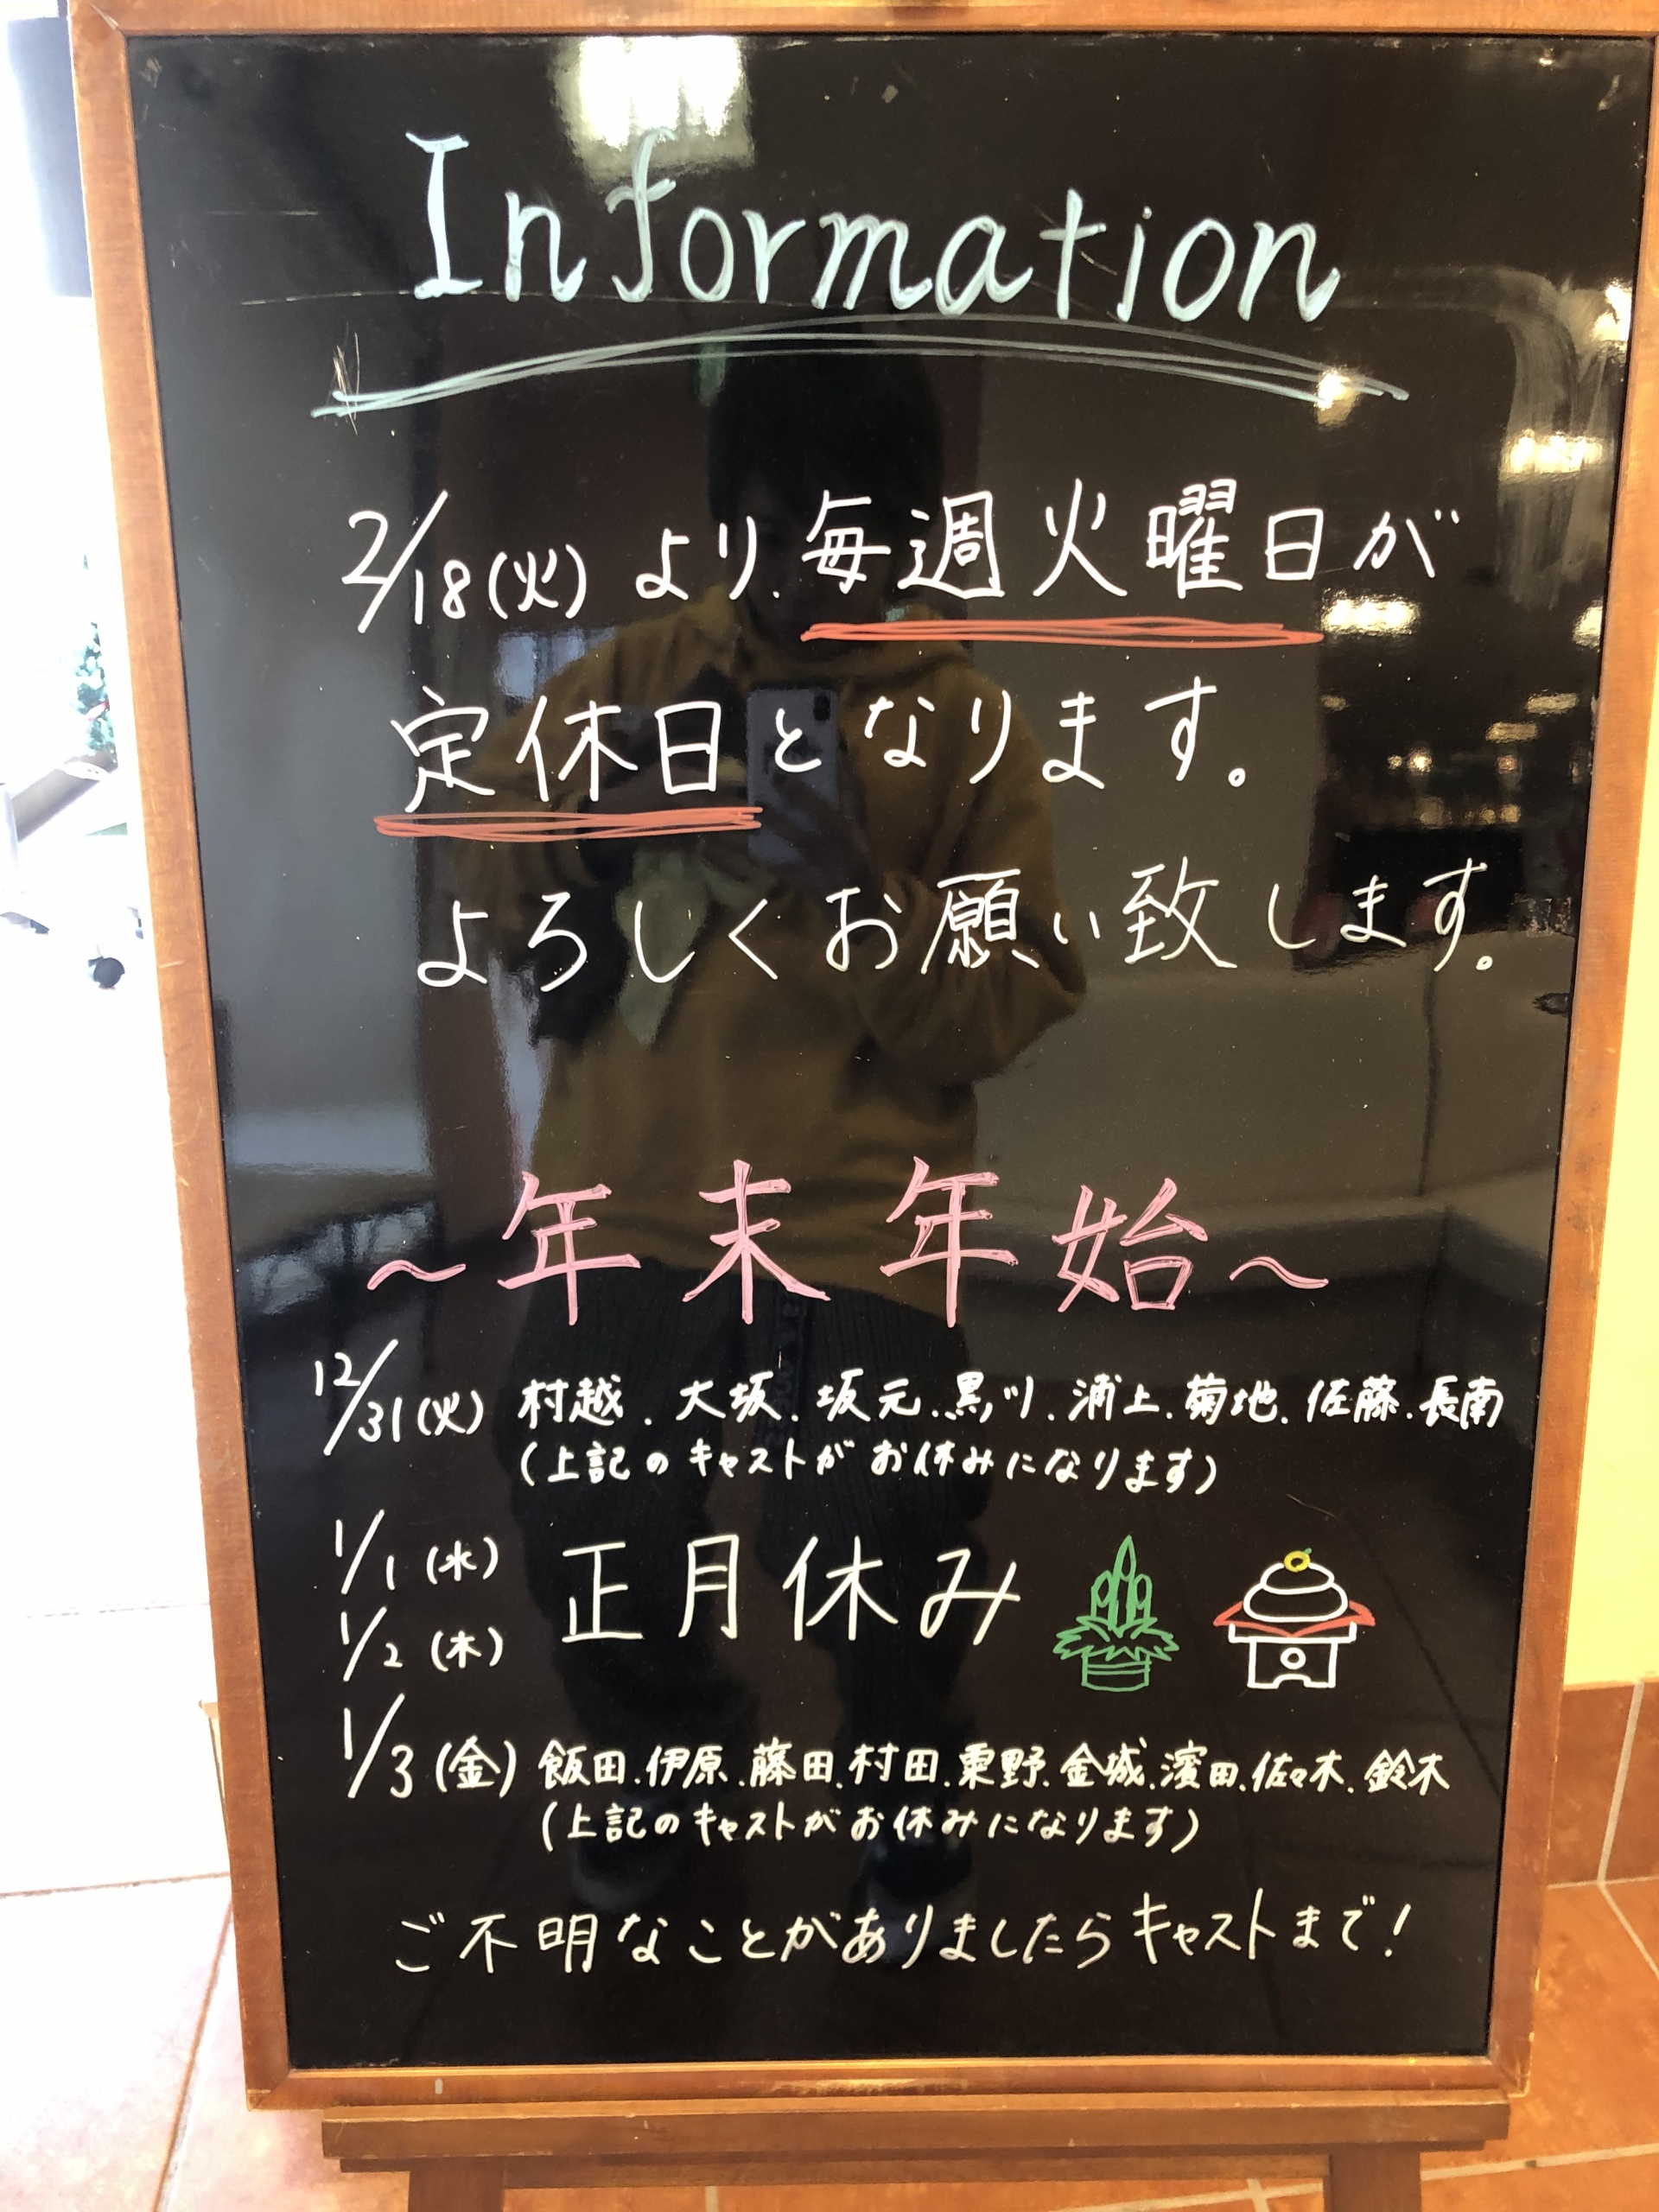 Information
2/18(火)より、毎週火曜日が
定休日となります。
よろしくお願い致します。
～年末年始～
12/31(火) 村越、大坂、坂元、黒川、浦上、菊地、佐藤、長南
(上記のキャストがお休みになります)
1/1(水) 正月休み
1/2(木)
1/3(金) 飯田、伊原、藤田、村田、粟野、金城、濱田、佐々木、鈴木
(上記のキャストがお休みになります)
ご不明なことがありましたらキャストまで!